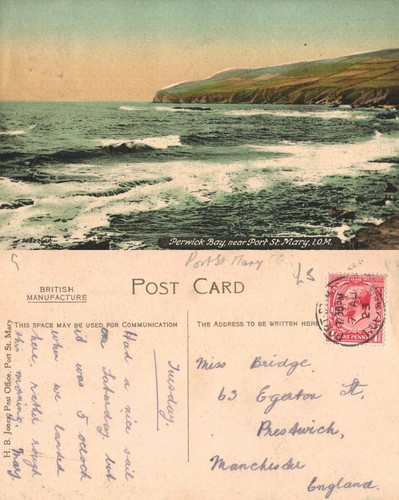 Perwick Bay, near Port St. Mary, I.O.M.
Port St Mary
£5
BRITISH
MANUFACTURE
POST CARD
THIS SPACE MAY BE USED FOR COMMUNICATION
THE ADDRESS TO BE WRITTEN HERE
H. B. Jones, Post Office, Port St. Mary
Tuesday.
Had a nice sail
on Saturday, but
it was 5 oclock
when we landed
here, rather rough
this morning. Mary
Miss Bridge,
63 Egerton St,
Prestwich,
Manchester
England.